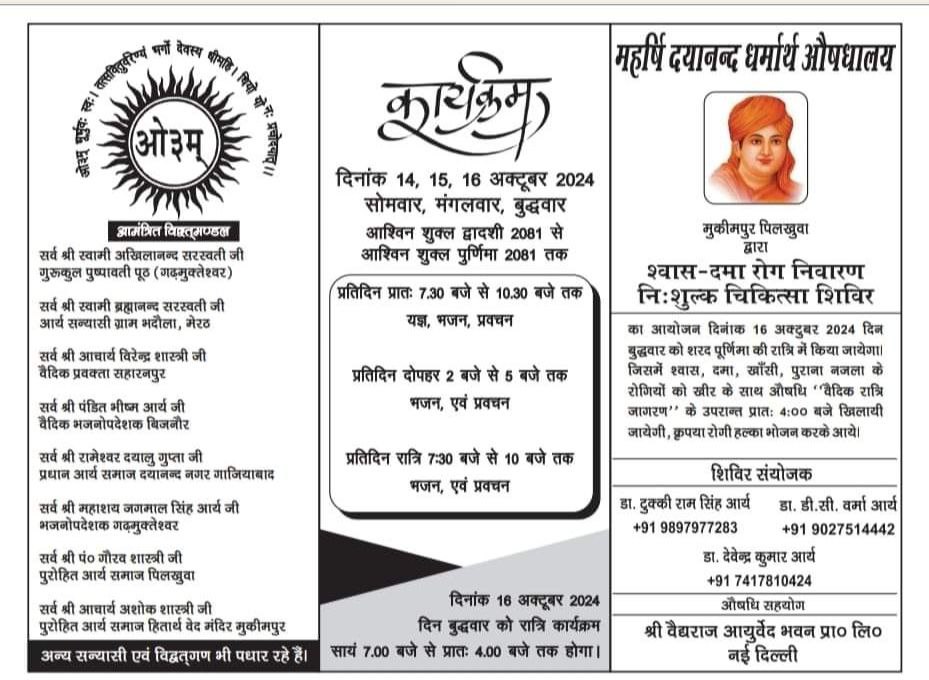 ओ३म् भूर्भुवः स्वः। तत्सवितुर्वरेण्यं भर्गो देवस्य धीमहि। धियो यो नः प्रचोदयात्।।
ओ३म्
आमंत्रित विद्वत्मण्डल
सर्व श्री स्वामी अखिलानन्द सरस्वती जी
गुरूकुल पुष्पावती पूठ (गढ़मुक्तेश्वर)
सर्व श्री स्वामी ब्रह्मानन्द सरस्वती जी
आर्य सन्यासी ग्राम भदौला, मेरठ
सर्व श्री आचार्य विरेन्द्र शास्त्री जी
वैदिक प्रवक्ता सहारनपुर
सर्व श्री पंडित भीष्म आर्य जी
वैदिक भजनोपदेशक बिजनौर
सर्व श्री रामेश्वर दयालु गुप्ता जी
प्रधान आर्य समाज दयानन्द नगर गाजियाबाद
सर्व श्री महाशय जगमाल सिंह आर्य जी
भजनोपदेशक गढ़मुक्तेश्वर
सर्व श्री पं० गौरव शास्त्री जी
पुरोहित आर्य समाज पिलखुवा
सर्व श्री आचार्य अशोक शास्त्री जी
पुरोहित आर्य समाज हितार्थ वेद मंदिर मुकीमपुर
अन्य सन्यासी एवं विद्वत्गण भी पधार रहे हैं।
कार्यक्रम
दिनांक 14, 15, 16 अक्टूबर 2024
सोमवार, मंगलवार, बुद्धवार
आश्विन शुक्ल द्वादशी 2081 से
आश्विन शुक्ल पुर्णिमा 2081 तक
प्रतिदिन प्रातः 7.30 बजे से 10.30 बजे तक
यज्ञ, भजन, प्रवचन
प्रतिदिन दोपहर 2 बजे से 5 बजे तक
भजन, एवं प्रवचन
प्रतिदिन रात्रि 7:30 बजे से 10 बजे तक
भजन, एवं प्रवचन
दिनांक 16 अक्टूबर 2024
दिन बुद्धवार को रात्रि कार्यक्रम
सायं 7.00 बजे से प्रातः 4.00 बजे तक होगा।
महर्षि दयानन्द धर्मार्थ औषधालय
मुकीमपुर पिलखुवा
द्वारा
श्वास-दमा रोग निवारण
निःशुल्क चिकित्सा शिविर
का आयोजन दिनांक 16 अक्टुबर 2024 दिन
बुद्धवार को शरद पूर्णिमा की रात्रि में किया जायेगा।
जिसमें श्वास, दमा, खाँसी, पुराना नजला के
रोगियों को खीर के साथ औषधि ‘‘वैदिक रात्रि
जागरण’’ के उपरान्त प्रातः 4:00 बजे खिलायी
जायेगी, क्रपया रोगी हल्का भोजन करके आये।
शिविर संयोजक
डा. दुक्की राम सिंह आर्य
+91 9897977283
डा. डी.सी. वर्मा आर्य
+91 9027514442
डा. देवेन्द्र कुमार आर्य
+91 7417810424
औषधि सहयोग
श्री वैद्यराज आयुर्वेद भवन प्रा० लि०
नई दिल्ली